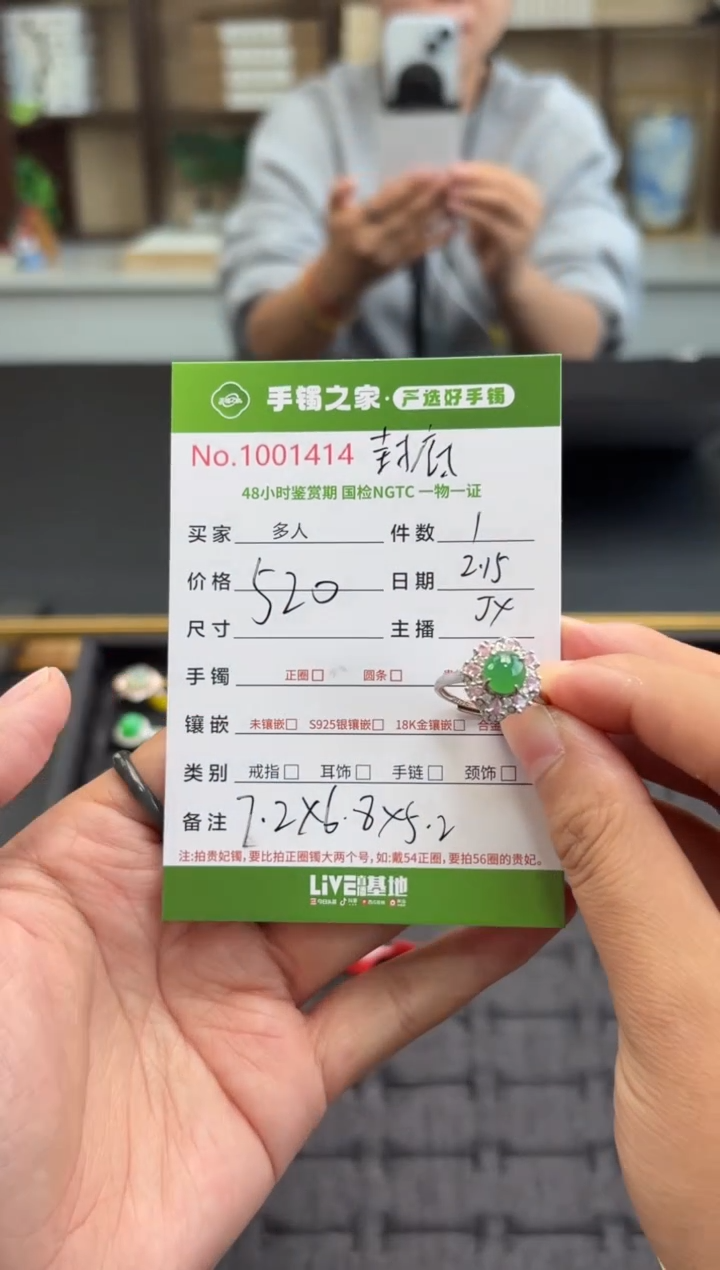 手镯之家·严选好手镯
No.1001414 封底
48小时鉴赏期 国检NGTC 一物一证
买家 多人 件数 1
价格 520 日期 2.15
尺寸 主播 JX
手镯 正圈□ 圆条□
镶嵌 未镶嵌□ S925银镶嵌□ 18K金镶嵌□ 合金
类别 戒指□ 耳饰□ 手链□ 颈饰□
备注 7.2X6.8X5.2
注:拍贵妃镯,要比拍正圈镯大两个号,如:戴54正圈,要拍56圈的贵妃。
LiVE直播基地